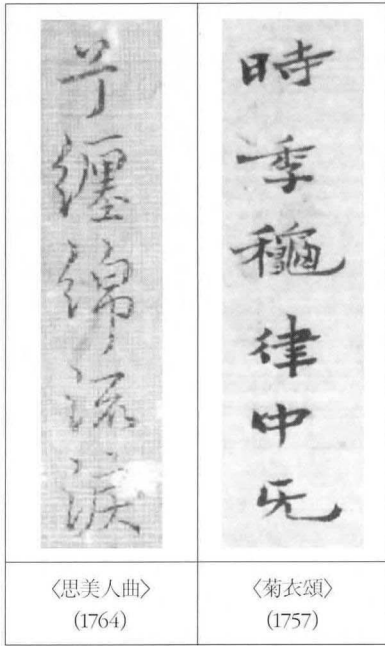 兮纏綿流淚
時季穐律中无
〈思美人曲〉
(1764)
〈菊衣頌〉
(1757)